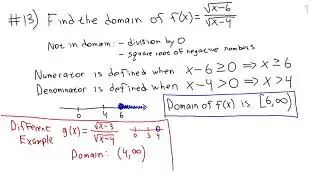 #13) Find the domain of f(x) = √x-6 / √x-4
Not in domain: - division by 0
- square root of negative numbers
Numerator is defined when x-6≥0 ⇒ x≥6
Denominator is defined when x-4>0 ⇒ x>4
0 4 6
Domain of f(x) is [6,∞)
Different Example g(x) = √x-3 / √x-4
0 3 4
Domain: (4,∞)